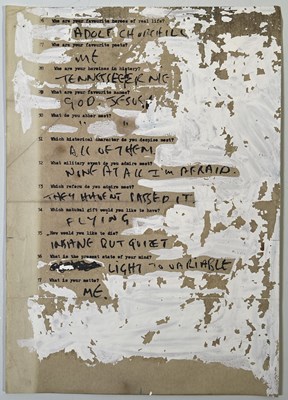 Who are your favourite heroes of real life?
ADOLF CHURCHILL
Who are your favourite poets?
ME
Who are your heroines in history?
TENNESSEE ERNIE
What are your favourite names?
GOD. JESUS!
What do you abhor most?
" "
Which historical character do you despise most?
ALL OF THEM
What military event do you admire most?
NONE AT ALL I'M AFRAID.
Which reform do you admire most?
THEY HAVEN'T PASSED IT
Which natural gift would you like to have?
FLYING
How would you like to die?
INSANE BUT QUIET
What is the present state of your mind?
LIGHT TO VARIABLE
What is your motto?
ME.